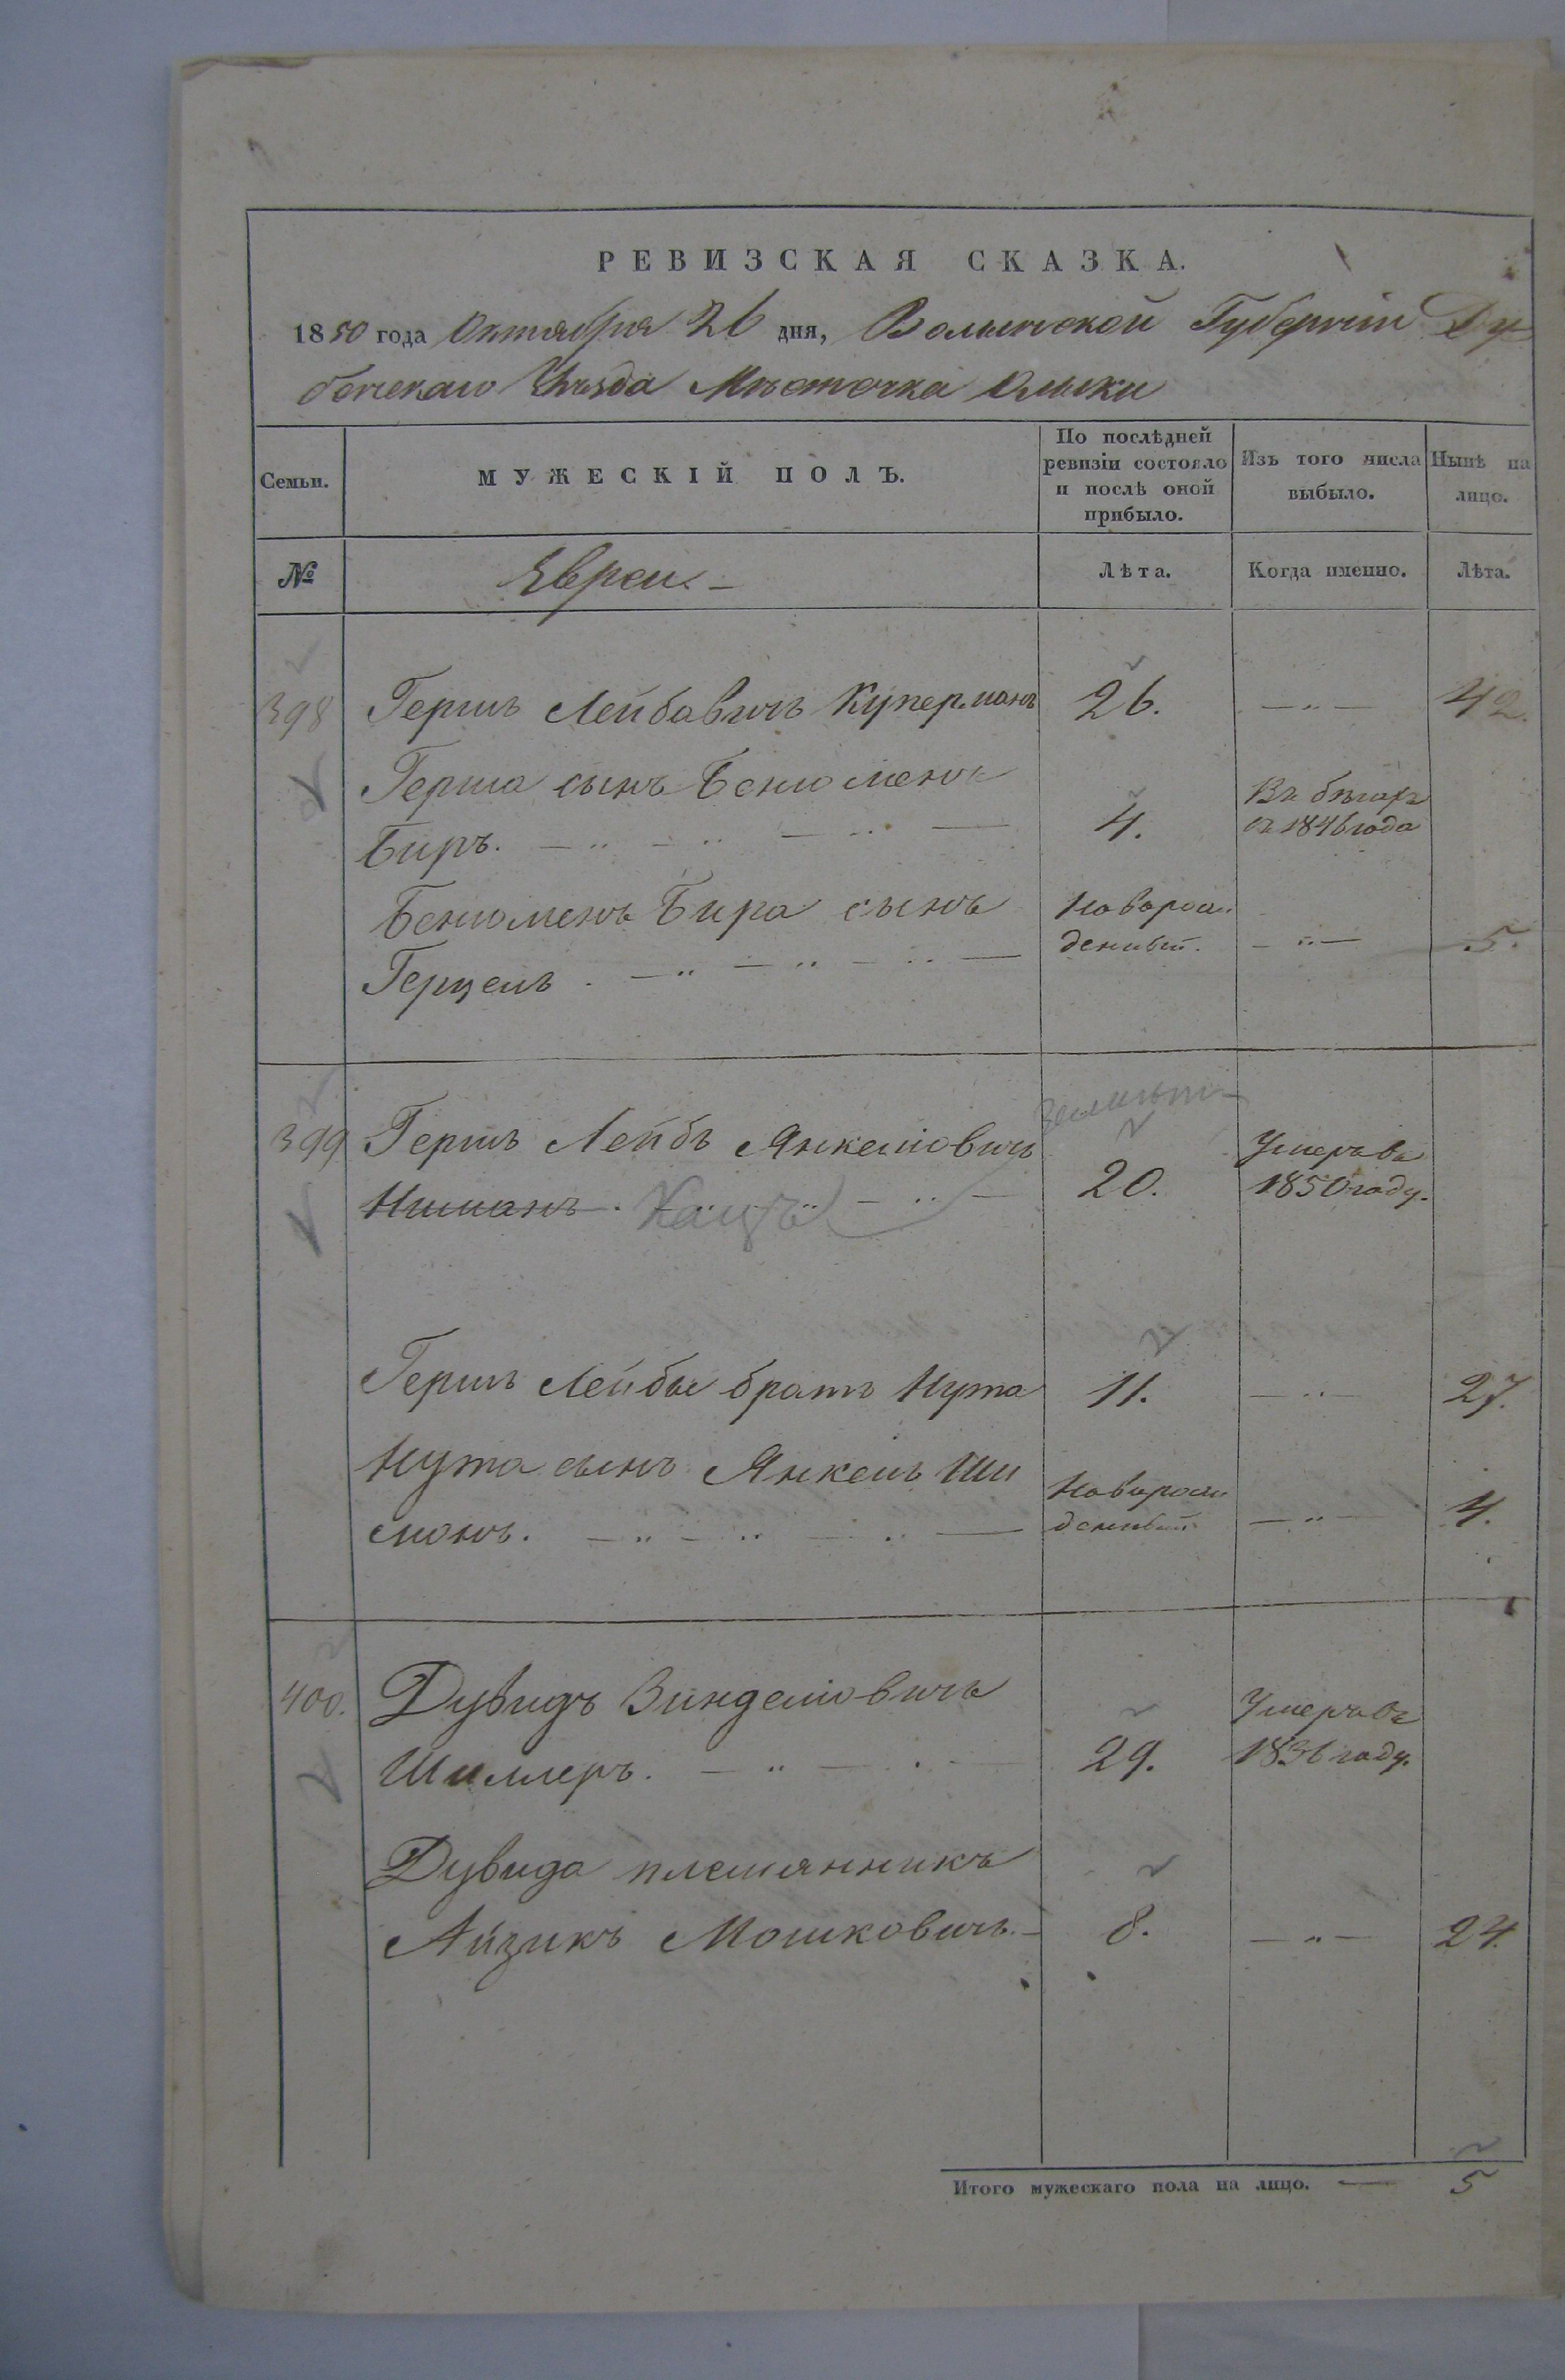 РЕВИЗСКАЯ СКАЗКА.
1850 года Октября 26 дня, Волынской Губерніи Ду
бенскаго Уѣзда Мѣстечка Олыки
Семьи.
МУЖЕСКІЙ ПОЛЪ.
По послѣдней
ревизіи состояло
и послѣ оной
прибыло.
Изъ того числа
выбыло.
Нынѣ на
лицо.
№
Евреи.
Лѣта.
Когда именно.
Лѣта.
398 Гершъ Лейбавичъ Куперманъ 26. 42.
Герша сынъ Бениоменъ
Биръ. 4. Въ бѣгахъ
съ 1846 года
Бениоменъ Бира сынъ Новорож
Герцель. денный. 5.
399 Гершъ Лейбъ Янкеліовичъ
Ниманъ. Кацъ 20. Умеръ въ
1850 году.
Гершъ Лейбы братъ Нута 11. 27.
Нута сынъ Янкель Ши Новорож
монъ. денный. 4.
400. Дувидъ Зинделіовичъ
Шиллеръ. 29. Умеръ въ
1836 году.
Дувида племянникъ
Айзикъ Мошковичъ. 8. 24.
Итого мужескаго пола на лицо. 5